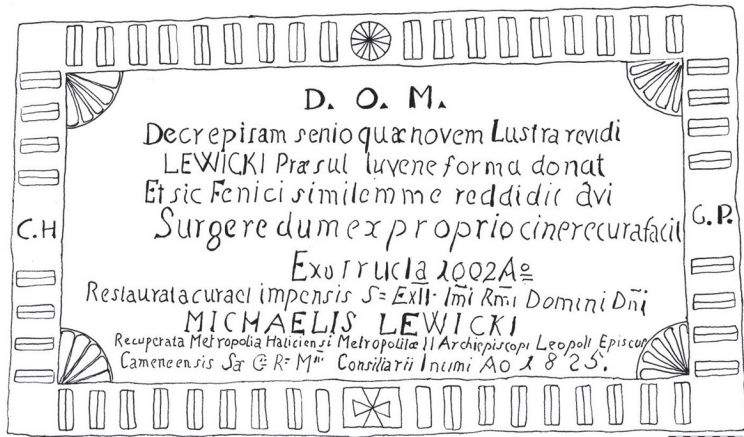 D. O. M.
Decrepisam senio quæ novem Lustra revidi
LEWICKI Præsul Iuvene forma donat
Et sic Fenici similem me reddidit avi
Surgere dum ex proprio cinere cura facit
C.H
G.P.
Exutrucla 1002 Ao
Restaurata cura et impensis S= ExII· Imi Rmi Domini Dni
MICHAELIS LEWICKI
Recuperata Metropolia Haliciensi Metropolitæ II Archiepiscopi Leopoli Episcup
Cameneensis Sæ C= R= M Consiliarii Inumi Ao 1825.